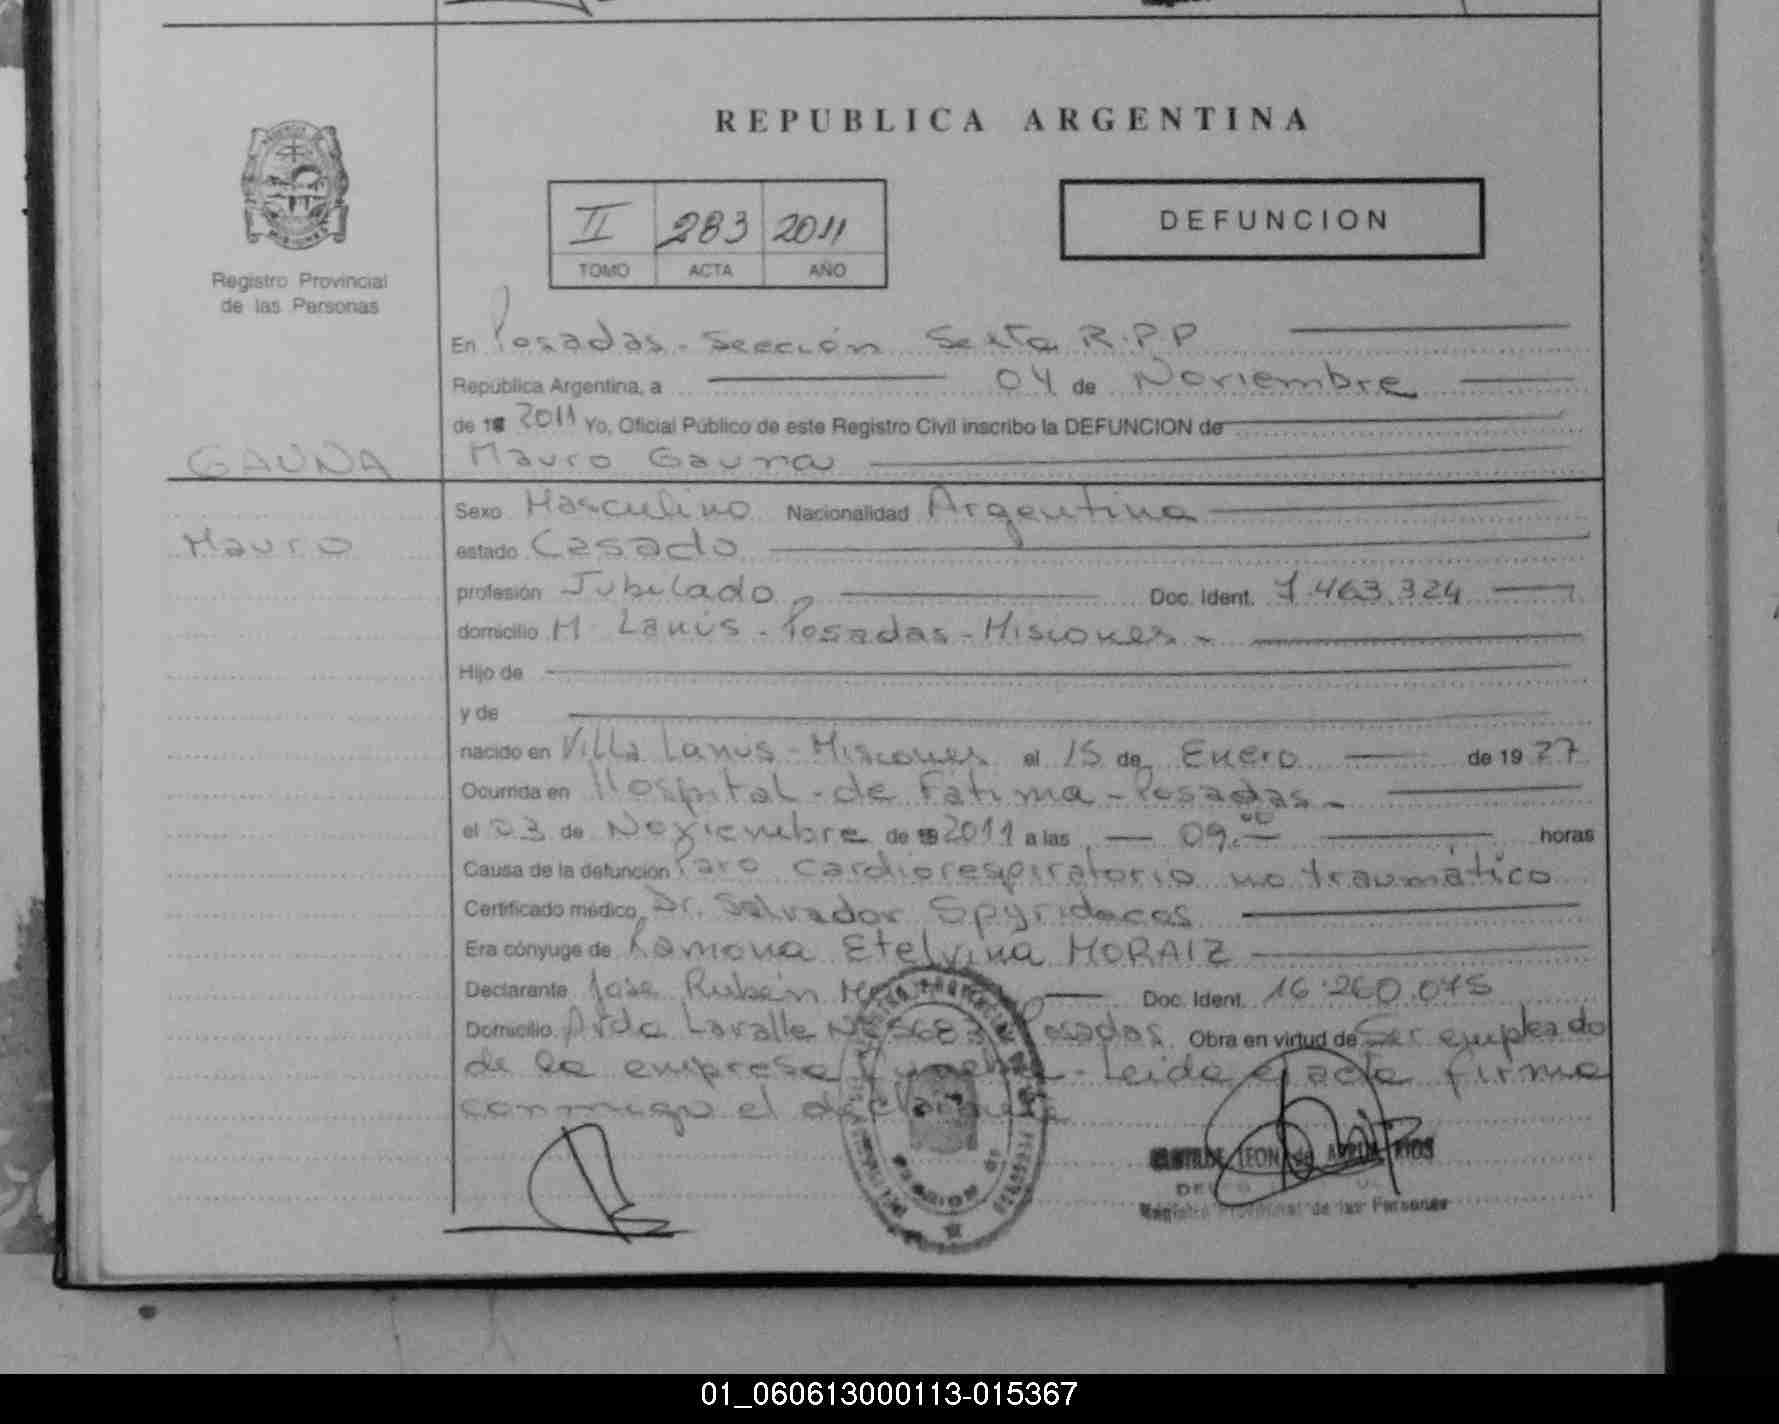 REPUBLICA ARGENTINA
II 283 2011
TOMO ACTA AÑO
DEFUNCION
Registro Provincial
de las Personas
En Posadas - Sección Sexta R.P.P
República Argentina, a 04 de Noviembre
de 2011 Yo, Oficial Público de este Registro Civil inscribo la DEFUNCION de
GAUNA Mauro Gauna
Sexo Masculino Nacionalidad Argentina
Mauro estado Casado
profesión Jubilado Doc. Ident. 7.463.324
domicilio M Lanús - Posadas - Misiones -
Hijo de
y de
nacido en Villa Lanus - Misiones el 15 de Enero de 19 27
Ocurrida en Hospital - de Fátima - Posadas -
el 03 de Noviembre de 2011 a las 09.00 horas
Causa de la defunción Paro cardiorespiratorio no traumático
Certificado médico Dr. Salvador Spyridacos
Era cónyuge de Ramona Etelvina MORAIZ
Declarante José Rubén Doc. Ident. 16.260.075
Domicilio Avda Lavalle Nº 5683 Posadas Obra en virtud de Ser empleado
de la empresa - Leida el acta firma
conmigo el declarante
LEON de RIOS
Registro Provincial de las Personas
01_060613000113-015367